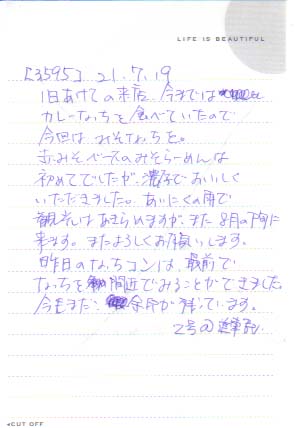 LIFE IS BEAUTIFUL
[3595] 21.7.19
1日あけての来店、今までは
カレーなっちを食べていたので
今回はみそなっちを。
赤みそベースのみそらーめんは
初めてでしたが、濃厚でおいしく
いただきました。あいにくの雨で
観光はあきらめますが、また8月の下旬に
来ます。またよろしくお願いします。
昨日のなっちコンは、最前で
なっちを間近でみることができました。
今もまだ、余韻が残っています。
2号の
◀CUT OFF